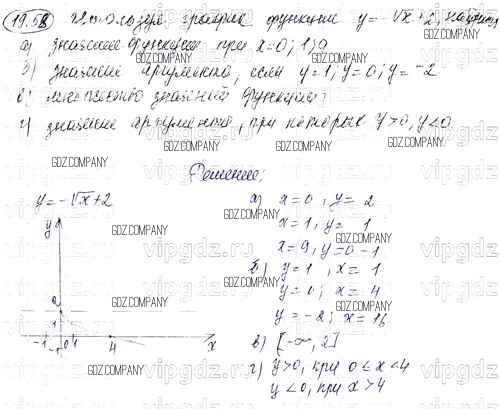 19.58 Используя график функции y=-√x+2, найдите
а) значение функции при x=0; 1; 9
б) значение аргумента, если y=1; y=0; y=-2
в) множество значений функции;
г) значение аргумента, при которых y>0, y<0
Решение:
y=-√x+2
а) x=0, y=2
x=1, y=1
x=9, y=-1
б) y=1, x=1
y=0; x=4
y=-2; x=16
в) [-∞, 2]
г) y>0, при 0≤x<4
y<0, при x>4
y
2
1
-1 0 1 4 x
-1
GDZ.COMPANY
vipgdz.ru